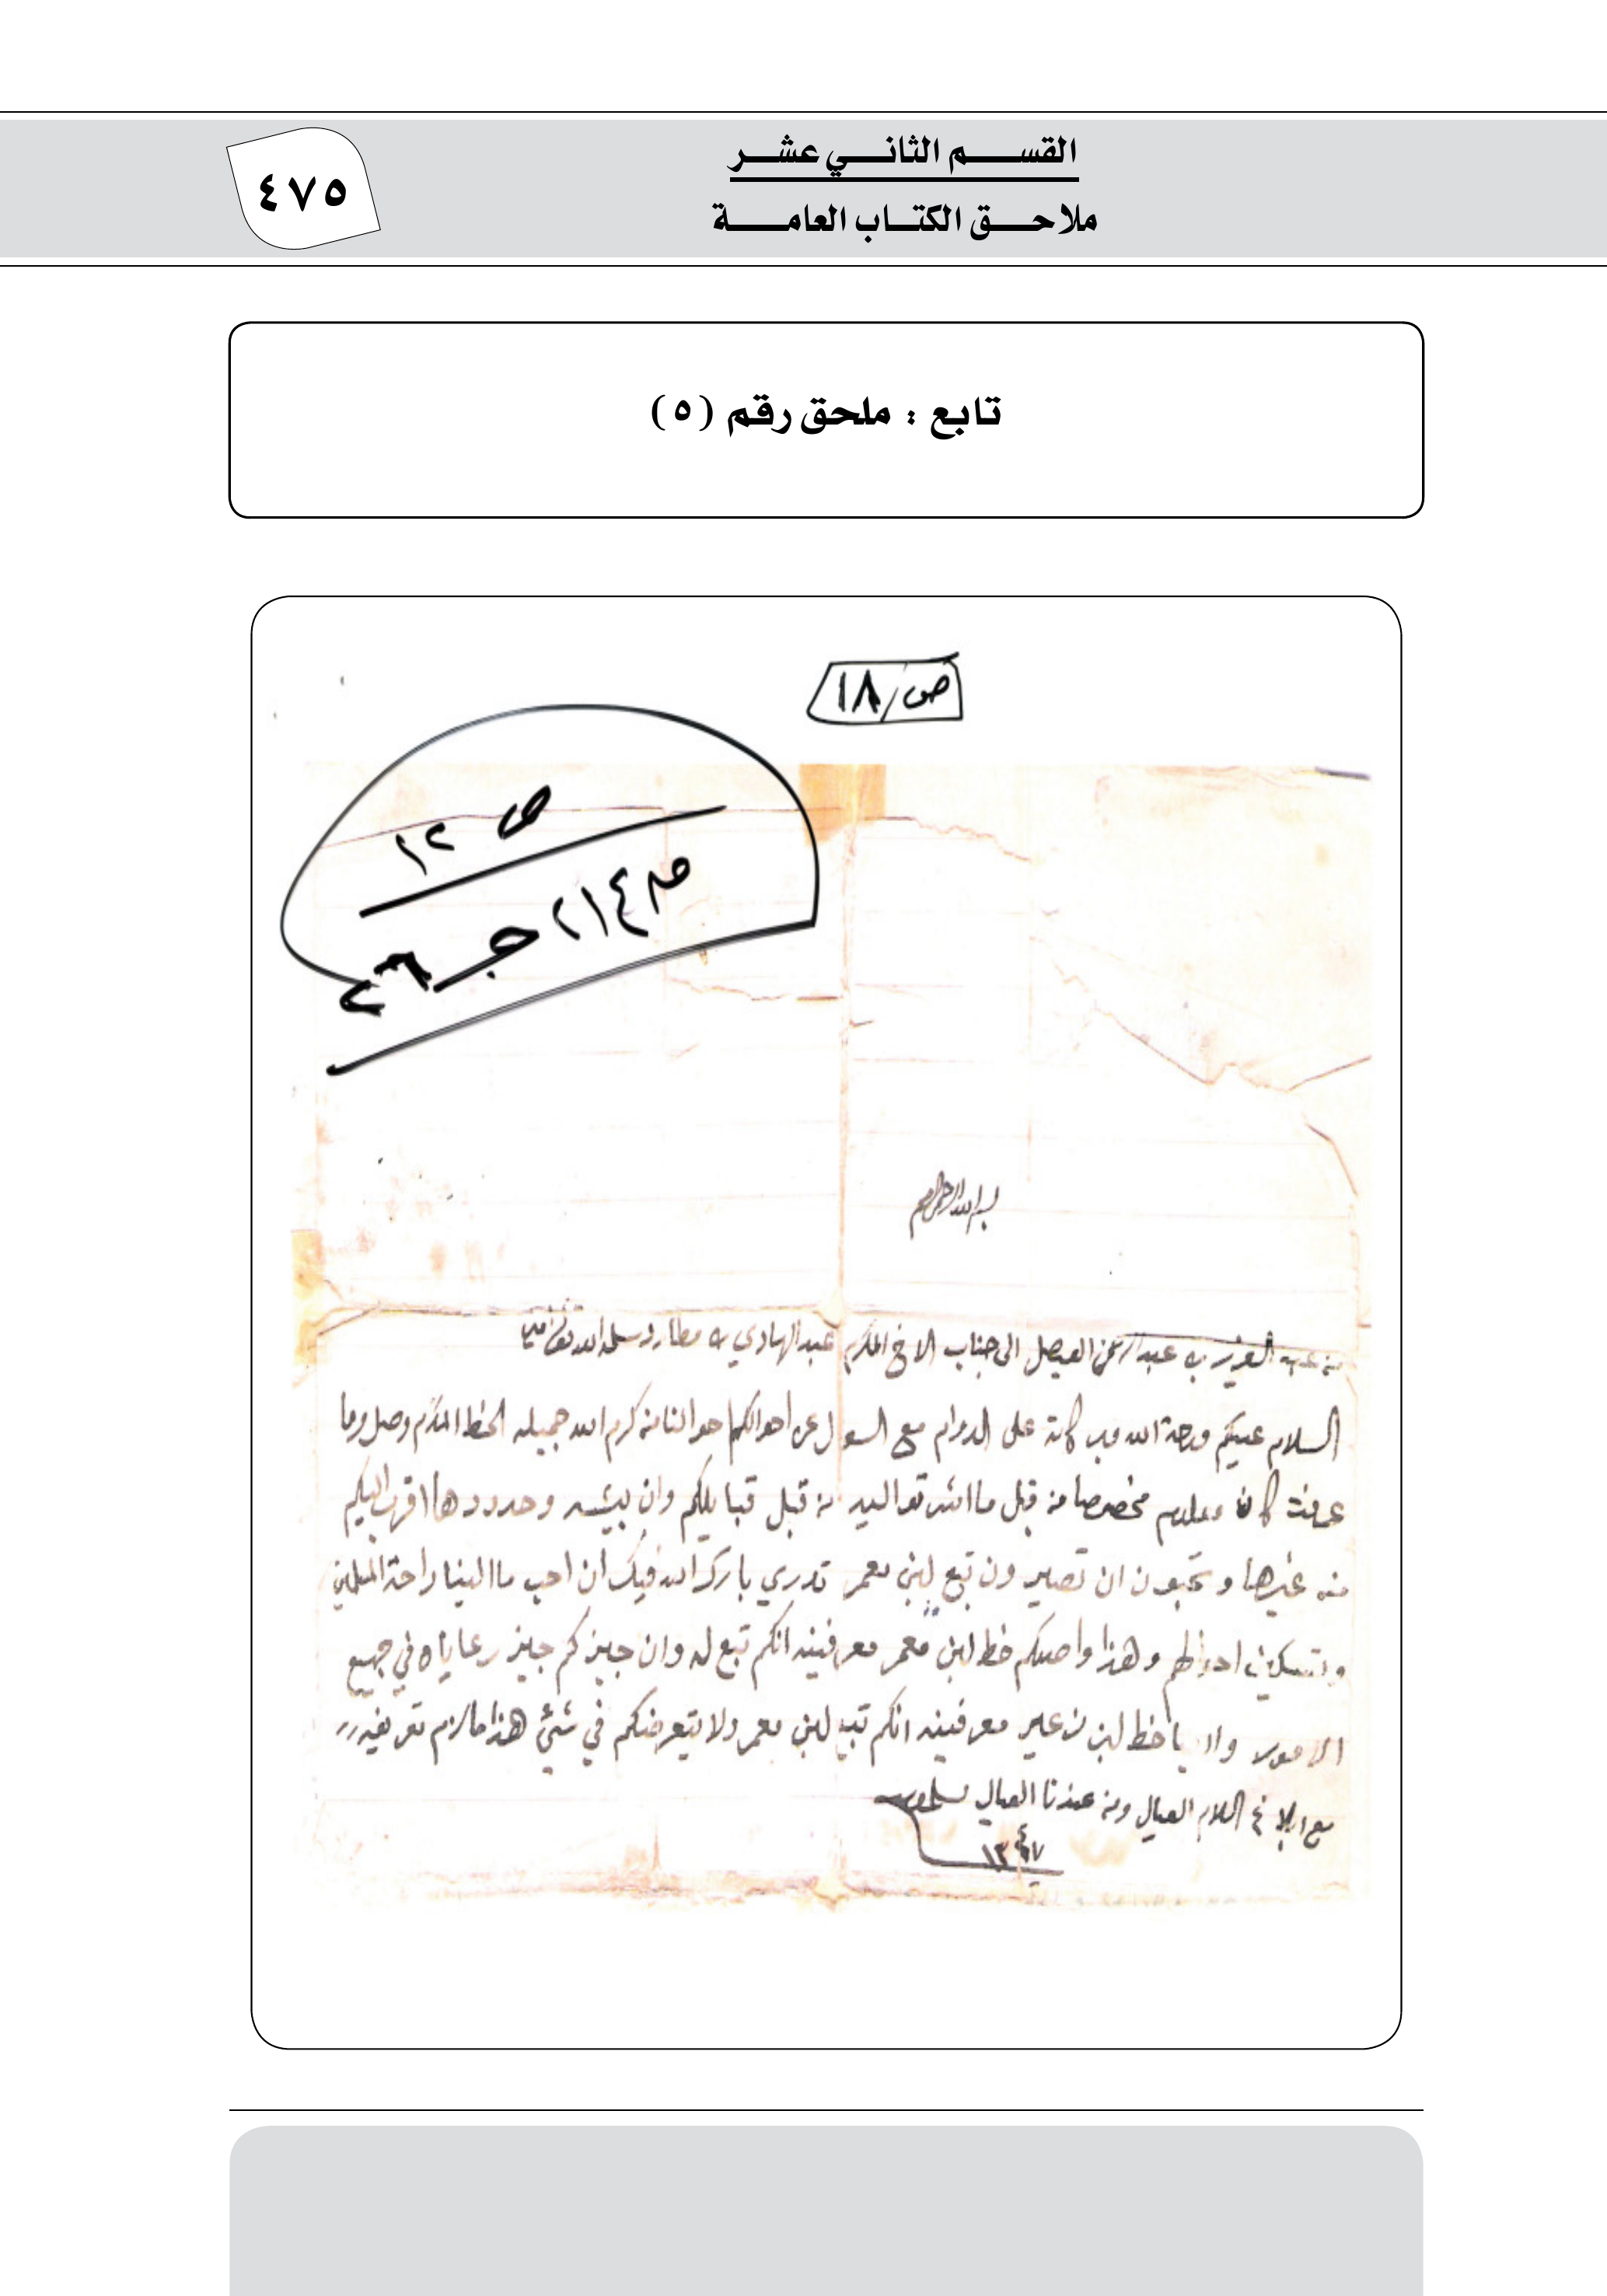 القســـم الثانـــي عشـــر
ملاحـــق الكتـــاب العامـــــة
٤٧٥
تابع : ملحق رقم (٥)
ص/١٨
ص ١٢
٢١٤ جـ
بسم الله الرحمن الرحيم
من عبد العزيز بن عبد الرحمن الفيصل الى جناب الاخ المكرم عبد الهادي بن مطارد سلمه الله تعالى امين
السلام عليكم ورحمة الله وبركاته على الدوام مع السوال عن احوالكم احوالنا من كرم الله جميله الخط المكرم وصل وما
عرفت كان معلوم مخصوصا من قبل ما اشرتوا اليه من قبل قبايلكم وان بيشه وحدودها اقرب اليكم
من غيرها وتحبون ان تصيرون تبع لبن معمر تدري بارك الله فيك ان احب ما الينا راحة المسلمين
وتسكين احوالهم وهذا واصلكم خط لبن معمر معرفينه انكم تبع له وان جيزكم جيز رعاياه في جميع
الامور والا يا خط لبن معرفينه انكم تبع لبن معمر ولا يتعرضكم في شئ هذا ما لزم تعريفه
مع ابلاغ السلام العيال ومن عندنا العيال يسلمون
١٣٤٧